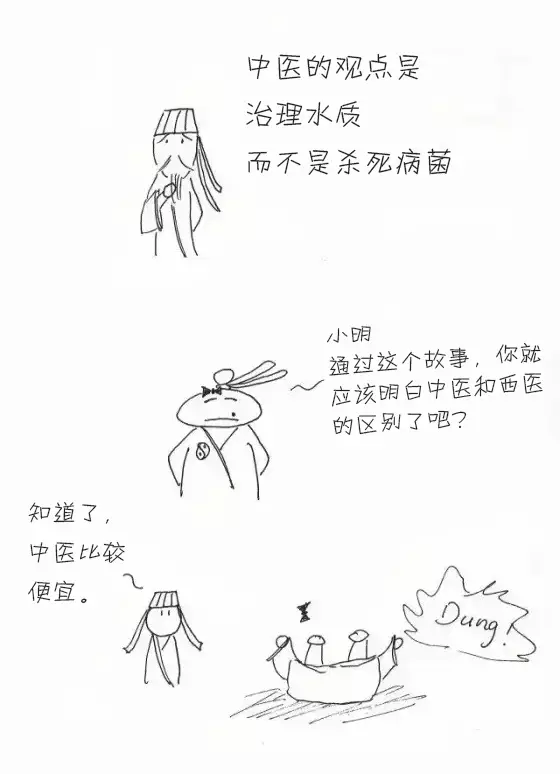 中医的观点是
治理水质
而不是杀死病菌
小明
通过这个故事，你就
应该明白中医和西医
的区别了吧？
知道了，
中医比较
便宜。
Dung!